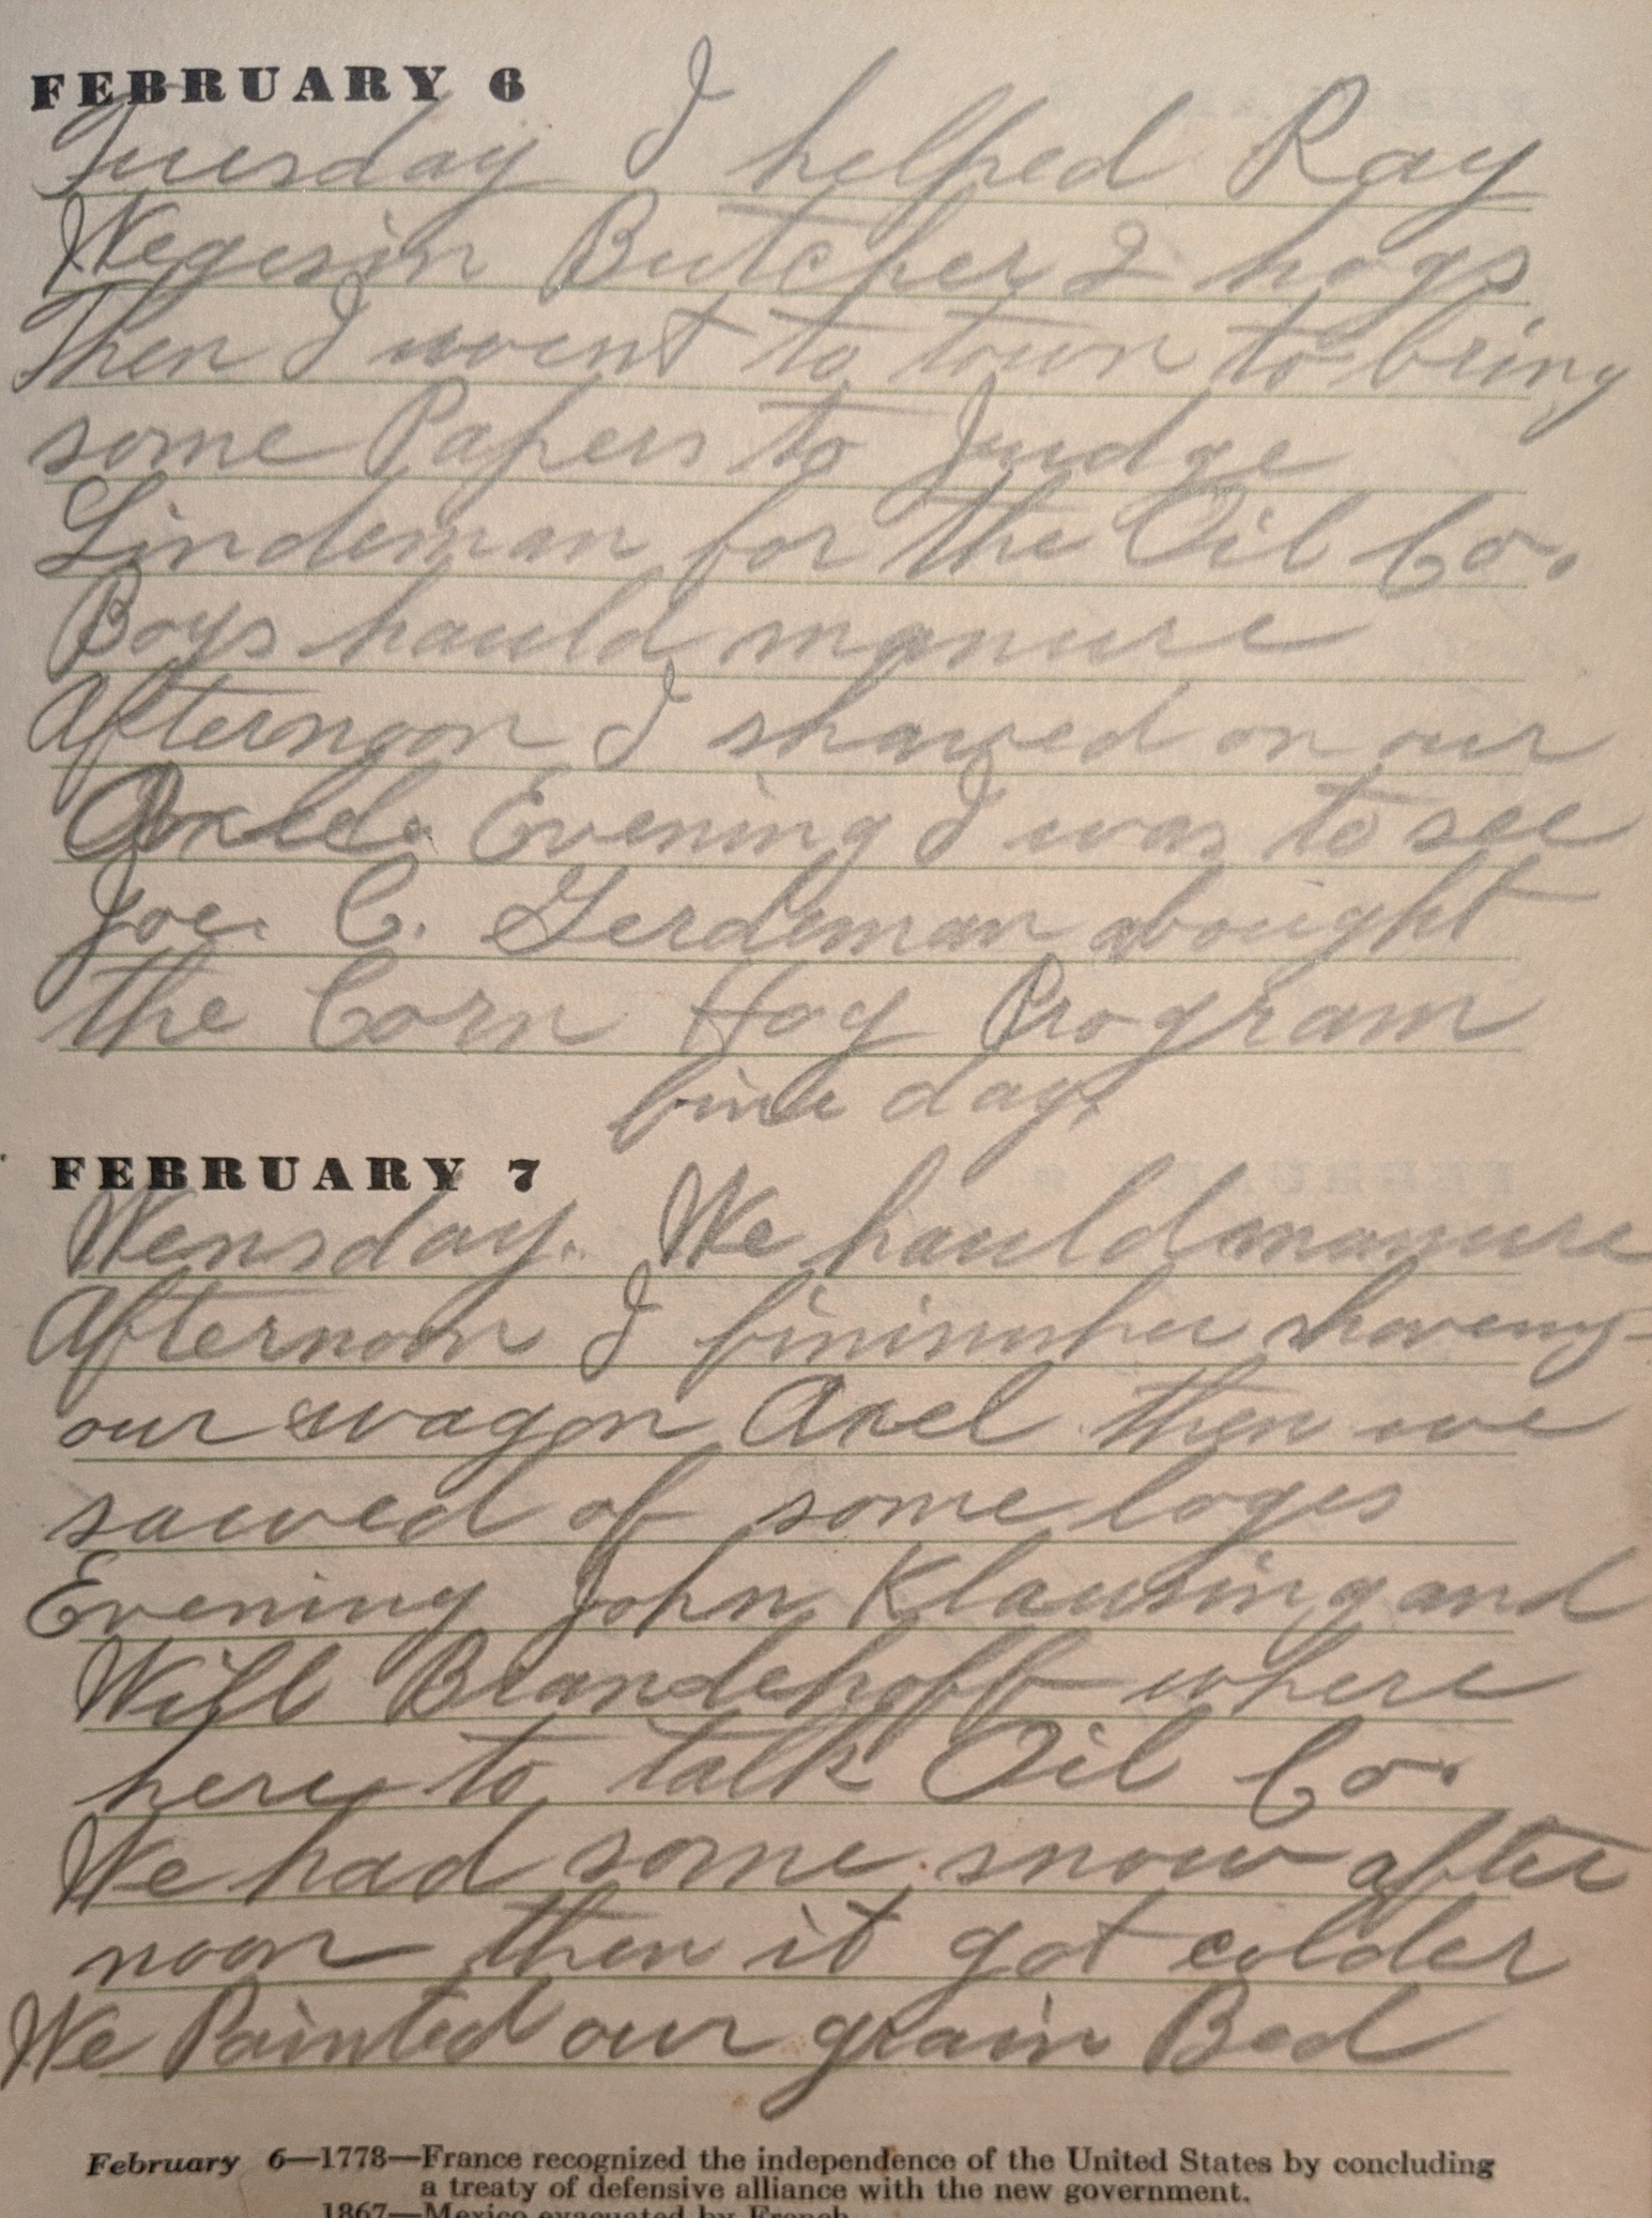 FEBRUARY 6
Tuesday I helped Ray
Wegesin Butcher 2 hogs
Then I went to town to bring
some Papers to Judge
Lindeman for the Oil Co.
Boys hauld manure
Afternoon I shaved on our
Evening I was to see
Joe. C. Gerdeman abought
the Corn Hog Program
fine day.
FEBRUARY 7
Wensday. We hauld manure
Afternoon I shaveing
our wagon Axel then we
sawed of some loges
Evening John Klausing and
Will Brandehoff where
here to talk Oil Co.
We had some snow after
noon then it got colder
We Painted our grain Bed
February 6—1778—France recognized the independence of the United States by concluding
a treaty of defensive alliance with the new government.
1867—Mexico evacuated by French.